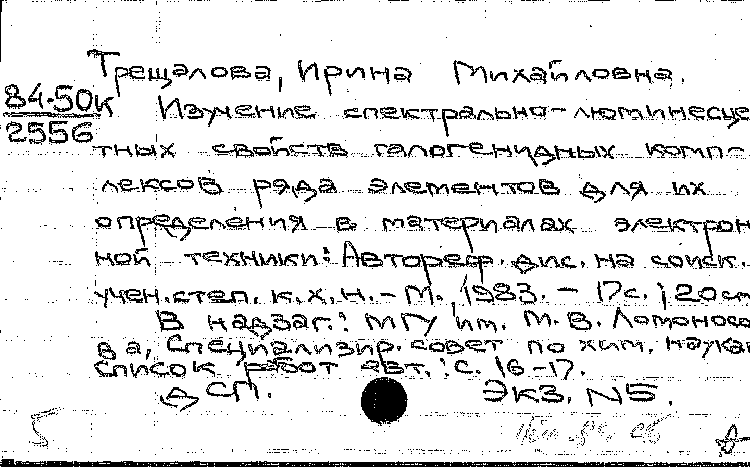 Трещалова, Ирина Михайловна.
84-50к
2556
Изучение спектрально-люминесце
тных свойств галогенидных комп-
лексов ряда элементов для их
определения в материалах электрон
ной техники: Автореф. дис. на соиск.
учен. степ. к. х. н. - М., 1983. - 17с.; 20см
В надзаг.: МГУ им. М. В. Ломоносо
ва, Специализир. совет по хим. наукам
Список работ авт.: с. 16-17.
ДСП. ЭКЗ. N5.
5